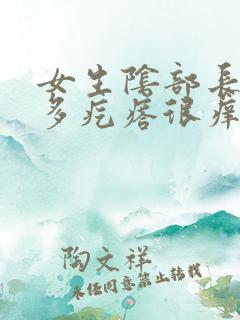 女生陰部長
多疙瘩很癢
陶文祥
未经同意禁止转载